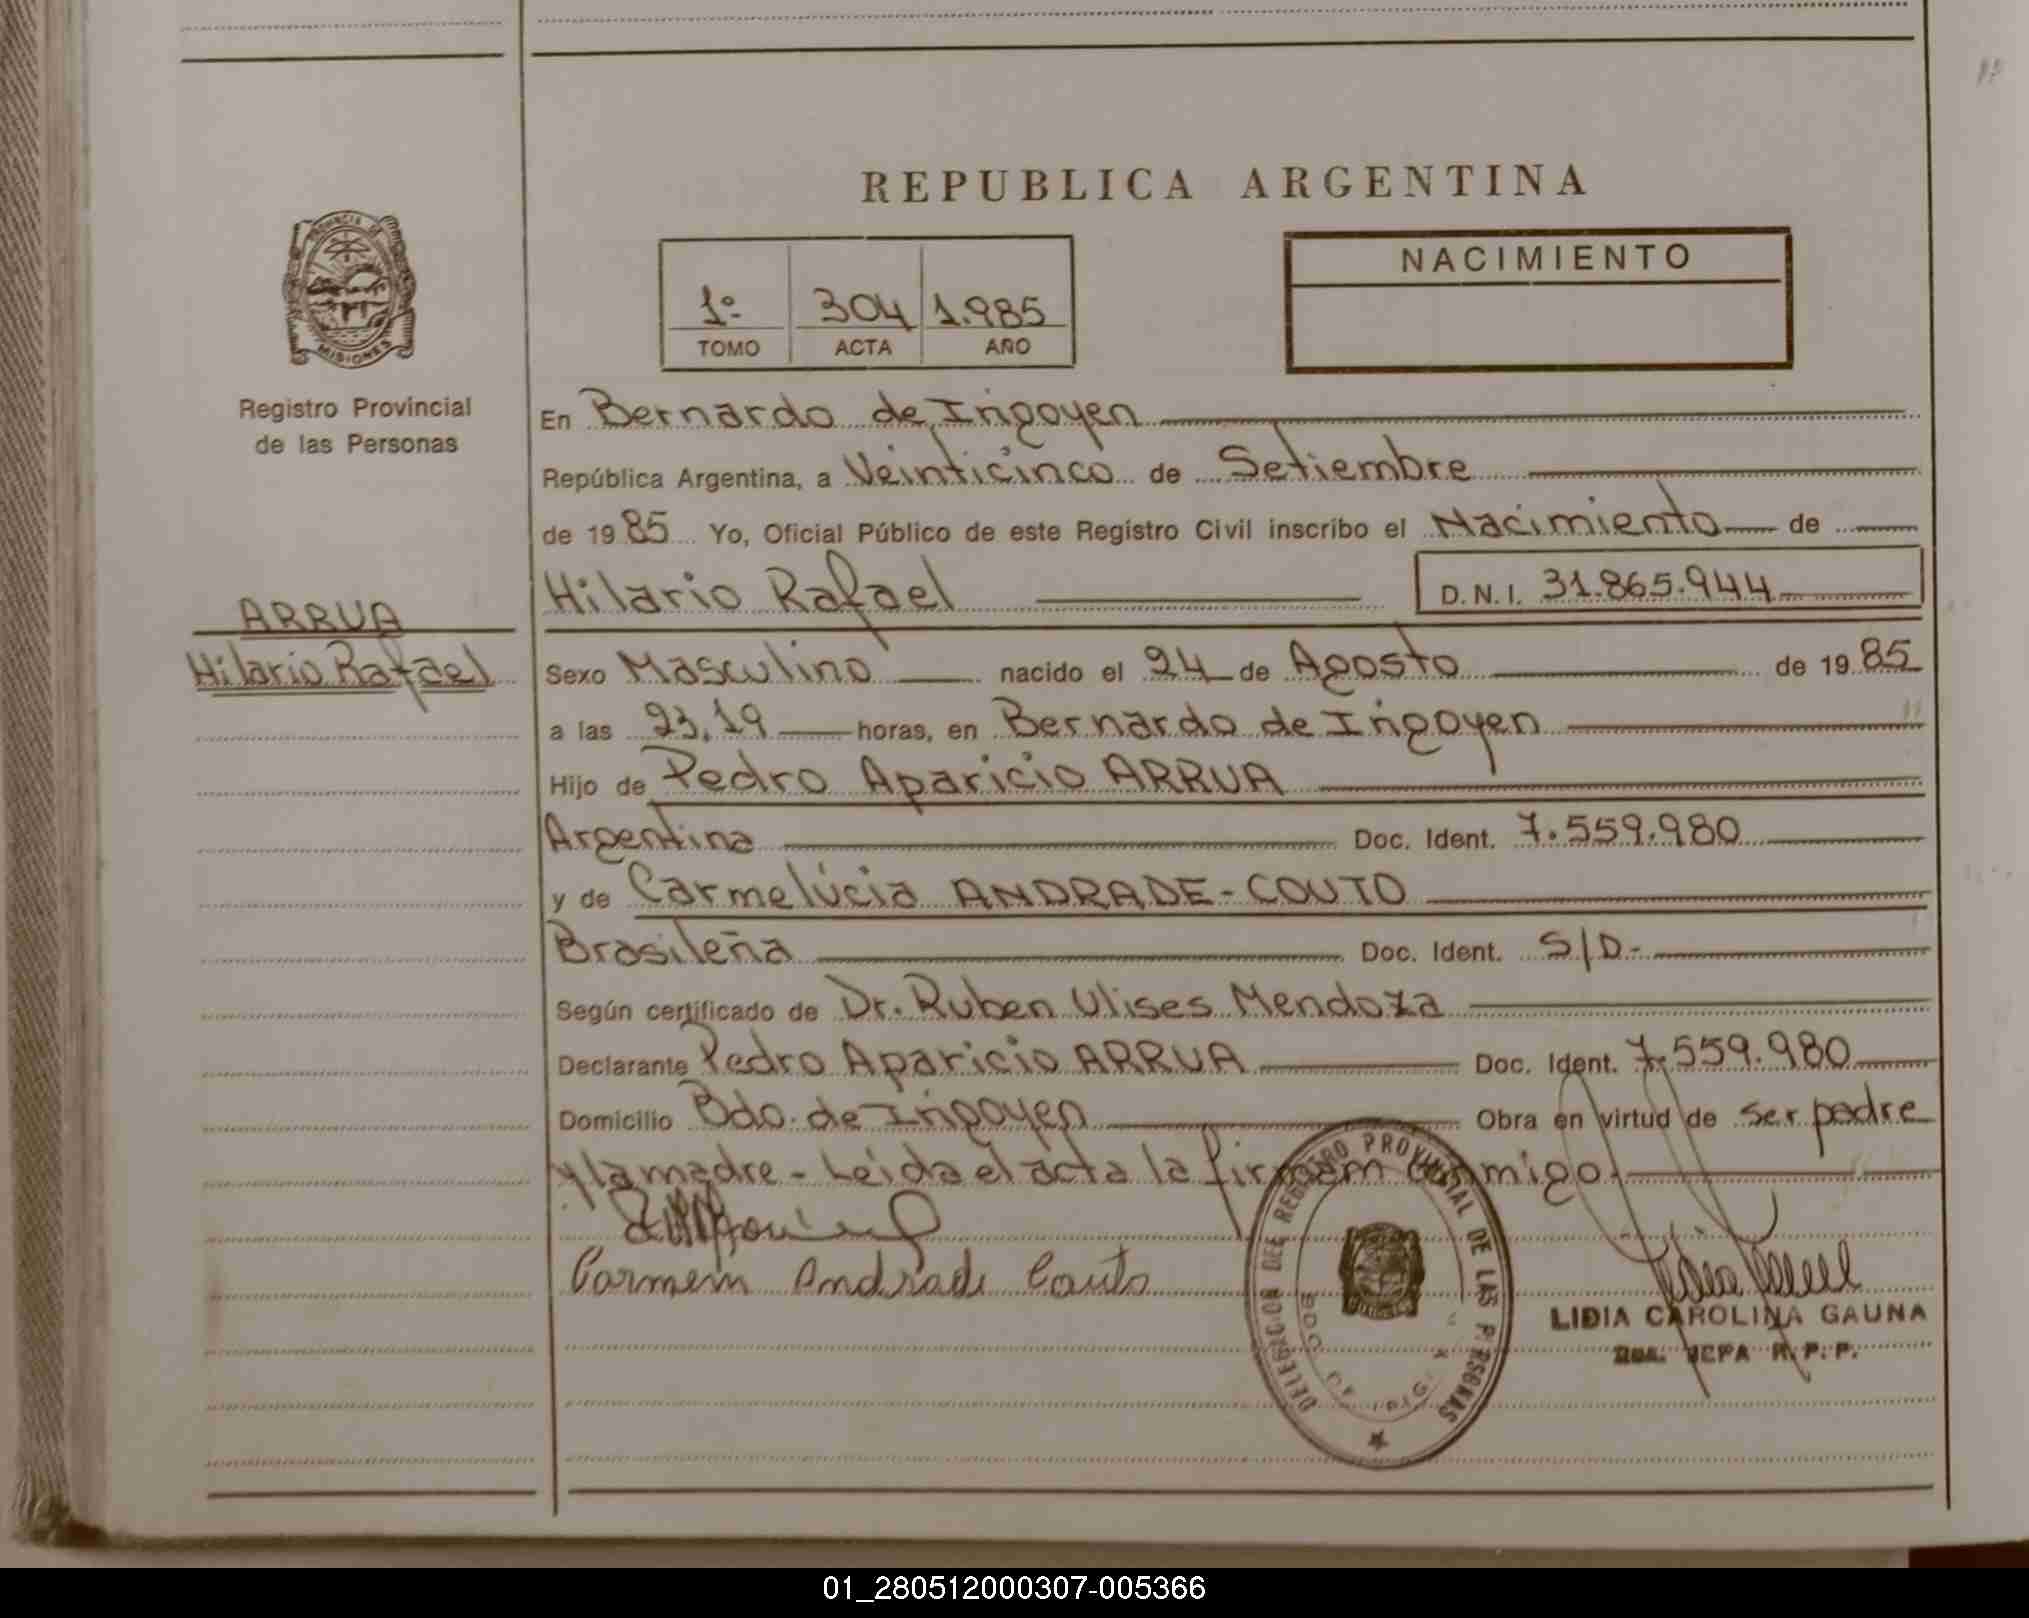 REPUBLICA ARGENTINA
PROVINCIA DE
MISIONES
Registro Provincial
de las Personas
ARRUA
Hilario Rafael
1º 304 1.985
TOMO ACTA AÑO
NACIMIENTO
En Bernardo de Irigoyen
República Argentina, a Veinticinco de Setiembre
de 1985 Yo, Oficial Público de este Registro Civil inscribo el Nacimiento de
Hilario Rafael D.N.I. 31.865.944
Sexo Masculino nacido el 24 de Agosto de 1985
a las 23,19 horas, en Bernardo de Irigoyen
Hijo de Pedro Aparicio ARRUA
Argentina Doc. Ident. 7.559.980
y de Carmelúcia ANDRADE-COUTO
Brasileña Doc. Ident. S/D.-
Según certificado de Dr. Ruben Ulises Mendoza
Declarante Pedro Aparicio ARRUA Doc. Ident. 7.559.980
Domicilio Bdo. de Irigoyen Obra en virtud de ser padre
y la madre - Leída el acta la firmam conmigo.
Carmem Andrade Couto
DELEGACION DEL REGISTRO PROVINCIAL DE LAS PERSONAS
BDO. DE
LIDIA CAROLINA GAUNA
JEFA R.P.P.
01_280512000307-005366